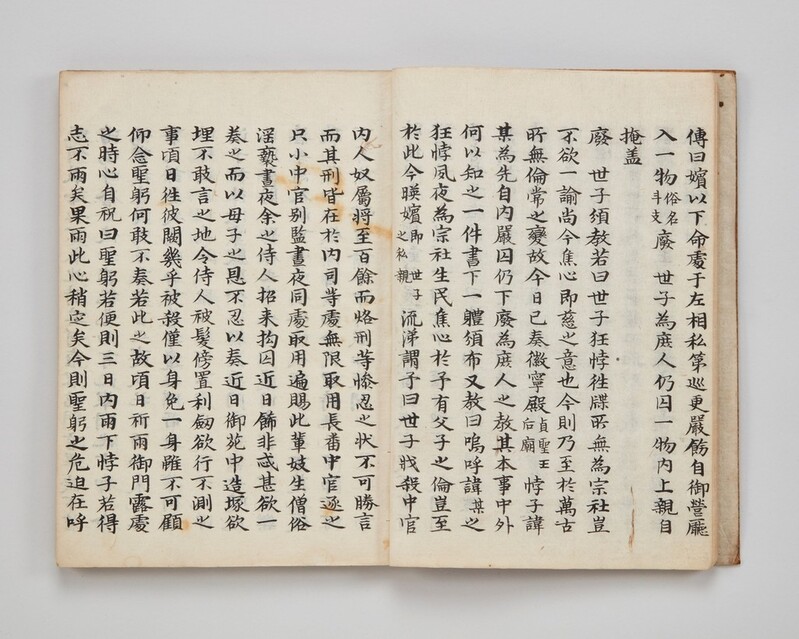 傳曰嬪以下命處于左相私第巡更嚴飭自御營廳
入一物俗名斗支廢 世子為庶人仍囚一物內上親自
掩盖
廢 世子頒教若曰世子狂悖徃牒所無為宗社豈
不欲一諭尚今焦心即慈之意也今則乃至於萬古
所無倫常之變故今日已奏徽寧殿貞聖王后廟悖子諱
某為先自內嚴囚仍下廢為庶人之教其本事中外
何以知之一件書下一體頒布又教曰嗚呼諱某之
狂悖夙夜為宗社生民焦心於予有父子之倫豈至
於此今暎嬪即 世子之私親流涕謂予曰世子戕殺中官
內人奴屬將至百餘而烙刑等慘忍之狀不可勝言
而其刑皆在於內司等處無限取用長番中官逐之
只小中官別監晝夜同處取用遍賜此輩妓生僧俗
淫褻晝夜余之侍人招来拘囚近日餙非惑甚欲一
奏之而以母子之恩不忍以奏近日御苑中造塚欲
埋不敢言之地令侍人被髮傍置利劒欲行不測之
事頃日徃彼闕幾乎被殺僅以身免一身雖不可顧
仰念聖躬何敢不奏若此之故頃日祈雨御門露處
之時心自祝曰聖躬若便則三日內雨下悖子若得
志不雨矣果雨此心稍定矣今則聖躬之危迫在呼